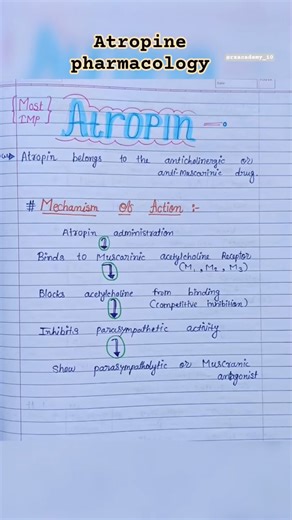 Atropine
pharmacology
[Most
IMP]
ATROPIN
Atropin belongs to the anticholinergic or
anti-muscarinic drug.
# Mechanism Of Action :-
Atropin administration
Binds to Muscarinic acetylcholine Receptor
(M₁, M₂, M₃)
Blocks acetylcholine from binding
(competitive inhibition)
Inhibits parasympathetic activity
Show parasympatholytic or Muscranic
antagonist